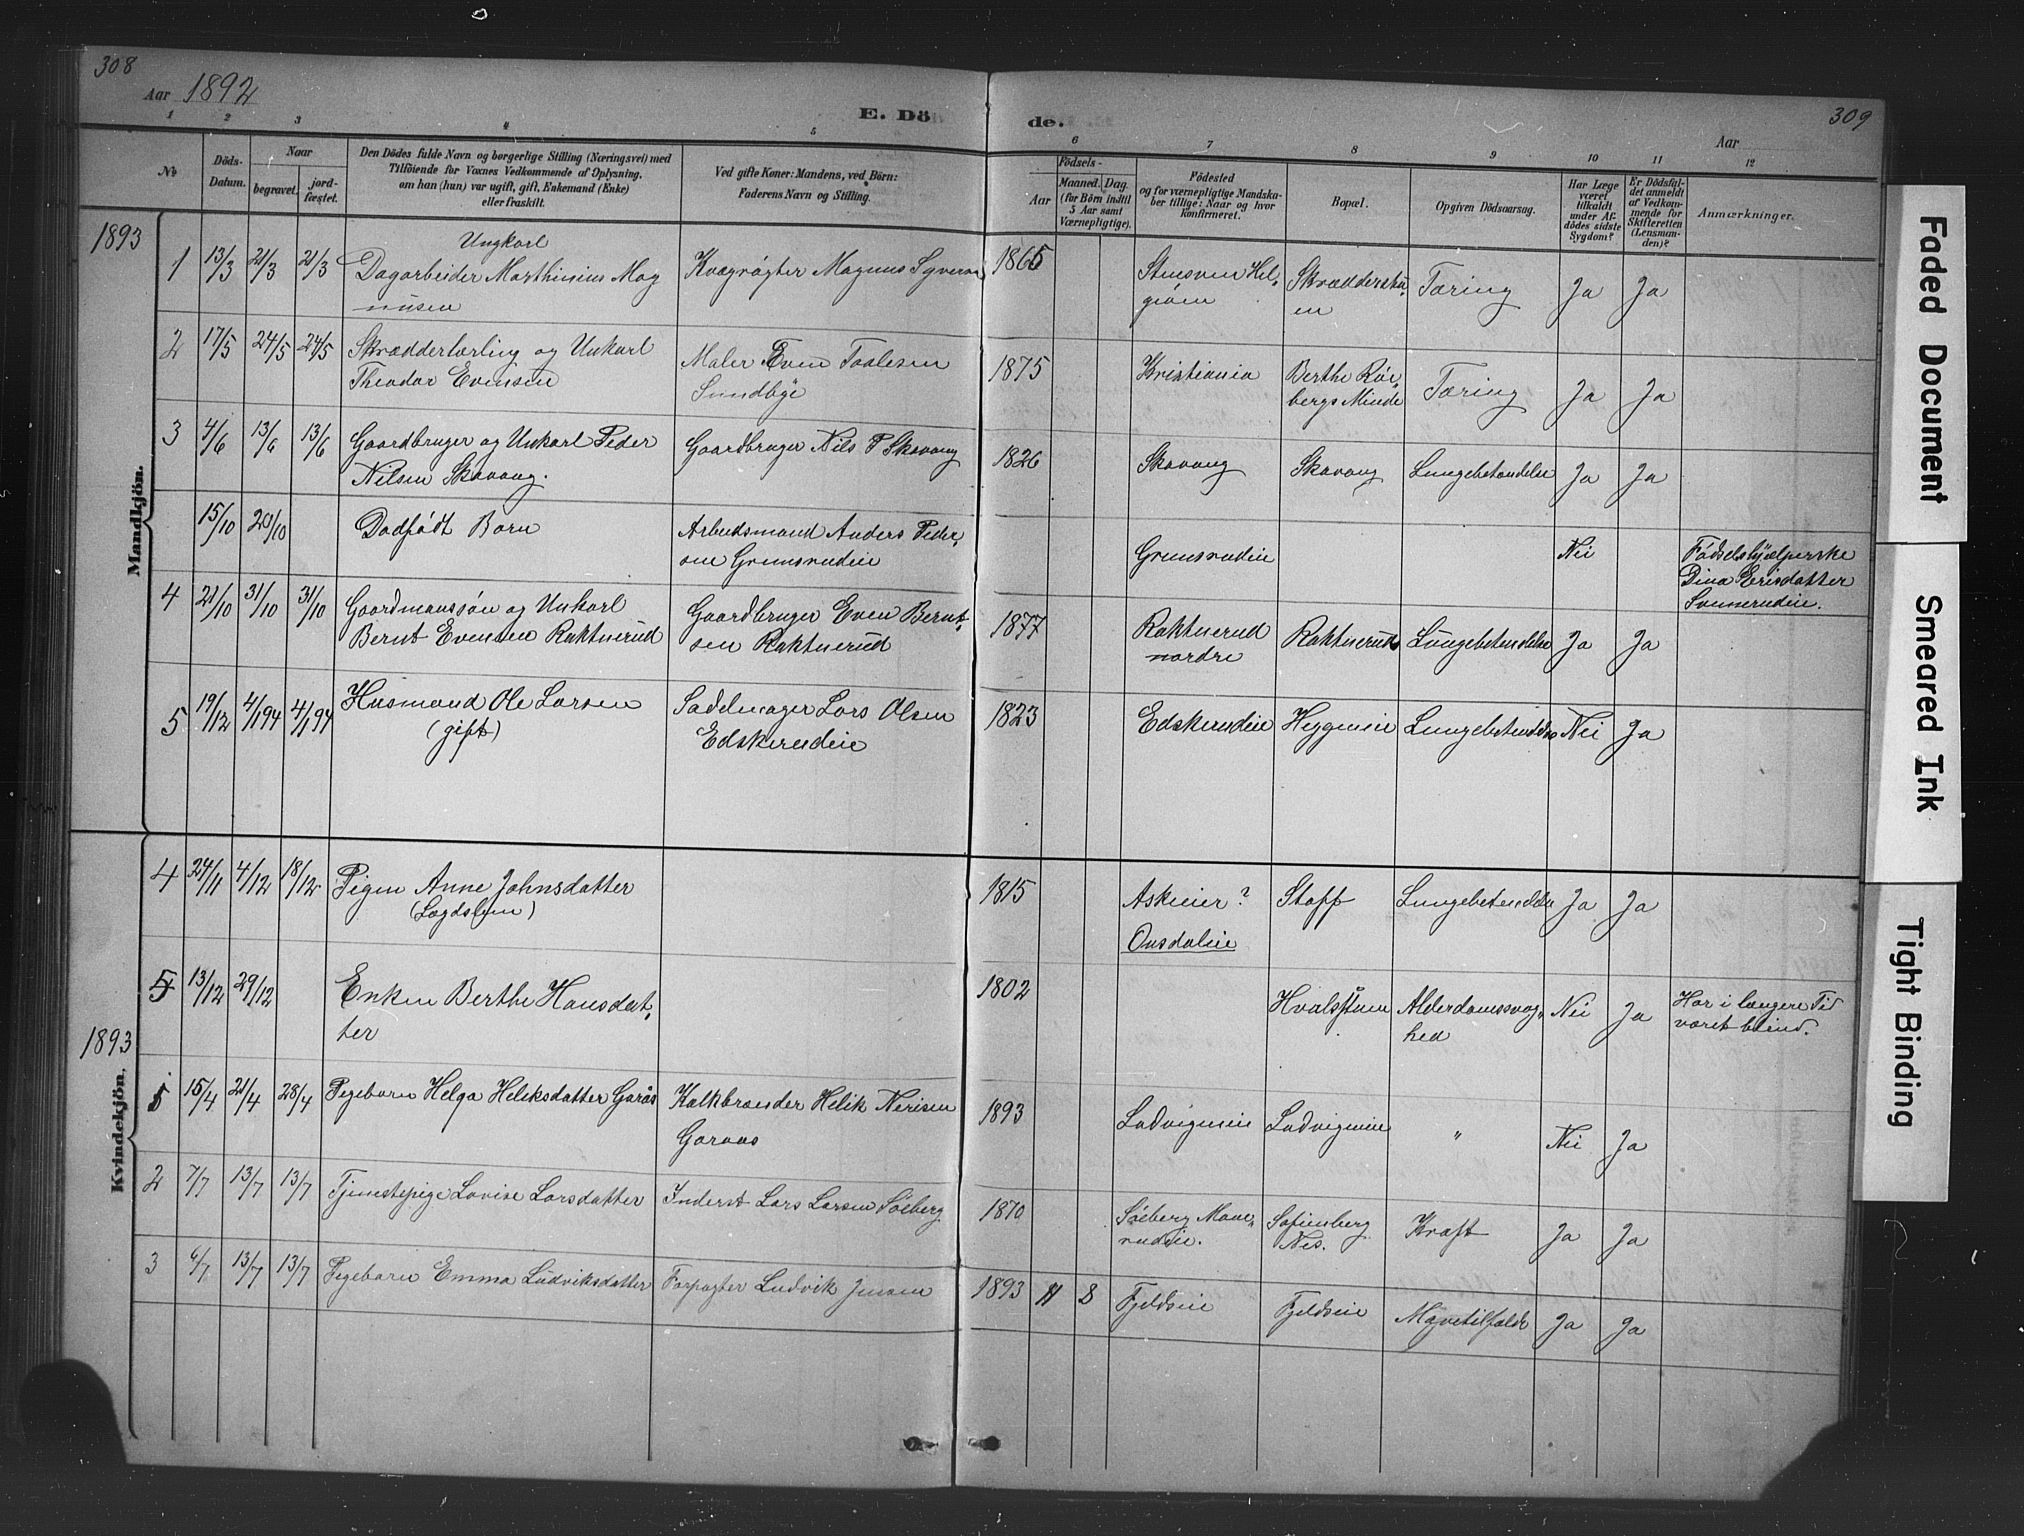 308
Aar 1892
E. Dö
de.
309
Aar
1 2 3 4 5 6 7 8 9 10 11 12
No
Döds-
Datum.
Naar
begravet.
jord-
fæstet.
Den Dödes fulde Navn og borgerlige Stilling (Næringsvei) med
Tilföiende for Voxnes Vedkommende af Oplysning,
om han (hun) var ugift, gift, Enkemand (Enke)
eller fraskilt.
Ved gifte Koner: Mandens, ved Börn:
Faderens Navn og Stilling.
Födsels-
Aar
Maaned. Dag.
(for Börn indtil
5 Aar samt
Værnepligtige).
Födested
og for værnepligtige Mandska-
ber tillige: Naar og hvor
konfirmeret.
Bopæl.
Opgiven Dödsaarsag.
Har Læge
været
tilkaldt
under Af-
dödes sidste
Sygdom?
Er Dödsfal-
det anmeldt
af Vedkom-
mende for
Skifteretten
(Lensman-
den)?
Anmærkninger.
Mandkjön.
1893
1 13/3 21/3 21/3
Ungkarl
Dagarbeider Marthinius Mag
nusen
Kvægrögter Magnus Syversen
1865
Stensven Hel-
gøen
Skræddersku-
en
Tæring
Ja Ja
2 17/5 24/5 24/5
Skrædderlærling og Unkarl
Theodor Evensen
Maler Even Taalesen
Sundbye
1875
Kristiania
Berthe Rös-
bergs Minde
Tæring
Ja Ja
3 4/6 13/6 13/6
Gaardbruger og Unkarl Peder
Nilsen Skavang.
Gaardbruger Nils P Skavang
1826
Skavang
Skavang
Lungebetændelse
Ja Ja
15/10 20/10
Dødfødt Barn
Arbeidsmand Anders Peder-
sen Grimsrudeie
Grimsrudeie
Nei
Fødselshjælperske
Dina Erisdatter
Svenerudeie.
4 21/10 31/10 31/10
Gaardmandssøn og Unkarl
Bernt Evensen Raktnerud
Gaardbruger Even Bernt-
sen Raktnerud
1877
Raktnerud
nordre
Raktnerud
Lungebetændelse
Ja Ja
5 19/12 4/1 94 4/1 94
Husmand Ole Larsen
(gift)
Sadelmager Lars Olsen
Edskerudeie
1823
Edskerudeie
Heggeneie
Lungebetændelse
Nei Ja
Kvindekjön.
4 24/11 4/12 18/12
Pigen Anne Johnsdatter
(Lægdslem)
1815
Askeier?
Onsdaleie
Staff
Lungebetændelse
Ja Ja
5 13/12 29/12
Enken Berthe Hansdat-
ter
1802
Hvalstuen
Alderdomssvag-
hed
Nei Ja
Har i længere Tid
været blind.
1893
1 15/4 21/4 28/4
Pigebarn Helga Heliksdatter Garås
Kalkbrænder Helik Nerisen
Garaas
1893
Ludvigseie
Ludvigseie
"
Nei Ja
2 7/7 13/7 13/7
Tjenestepige Lovise Larsdatter
Inderst Lars Larsen Söeberg
1870
Söeberg Mone-
rudeie.
Sofienberg
Nes.
Kræft
Ja Ja
3 6/7 13/7 13/7
Pigebarn Emma Ludviksdatter
Forpagter Ludvik Jensen
1893 11 8
Fjeldseie
Fjeldseie
Mavetilfælde
Ja Ja
Faded Document
Smeared Ink
Tight Binding